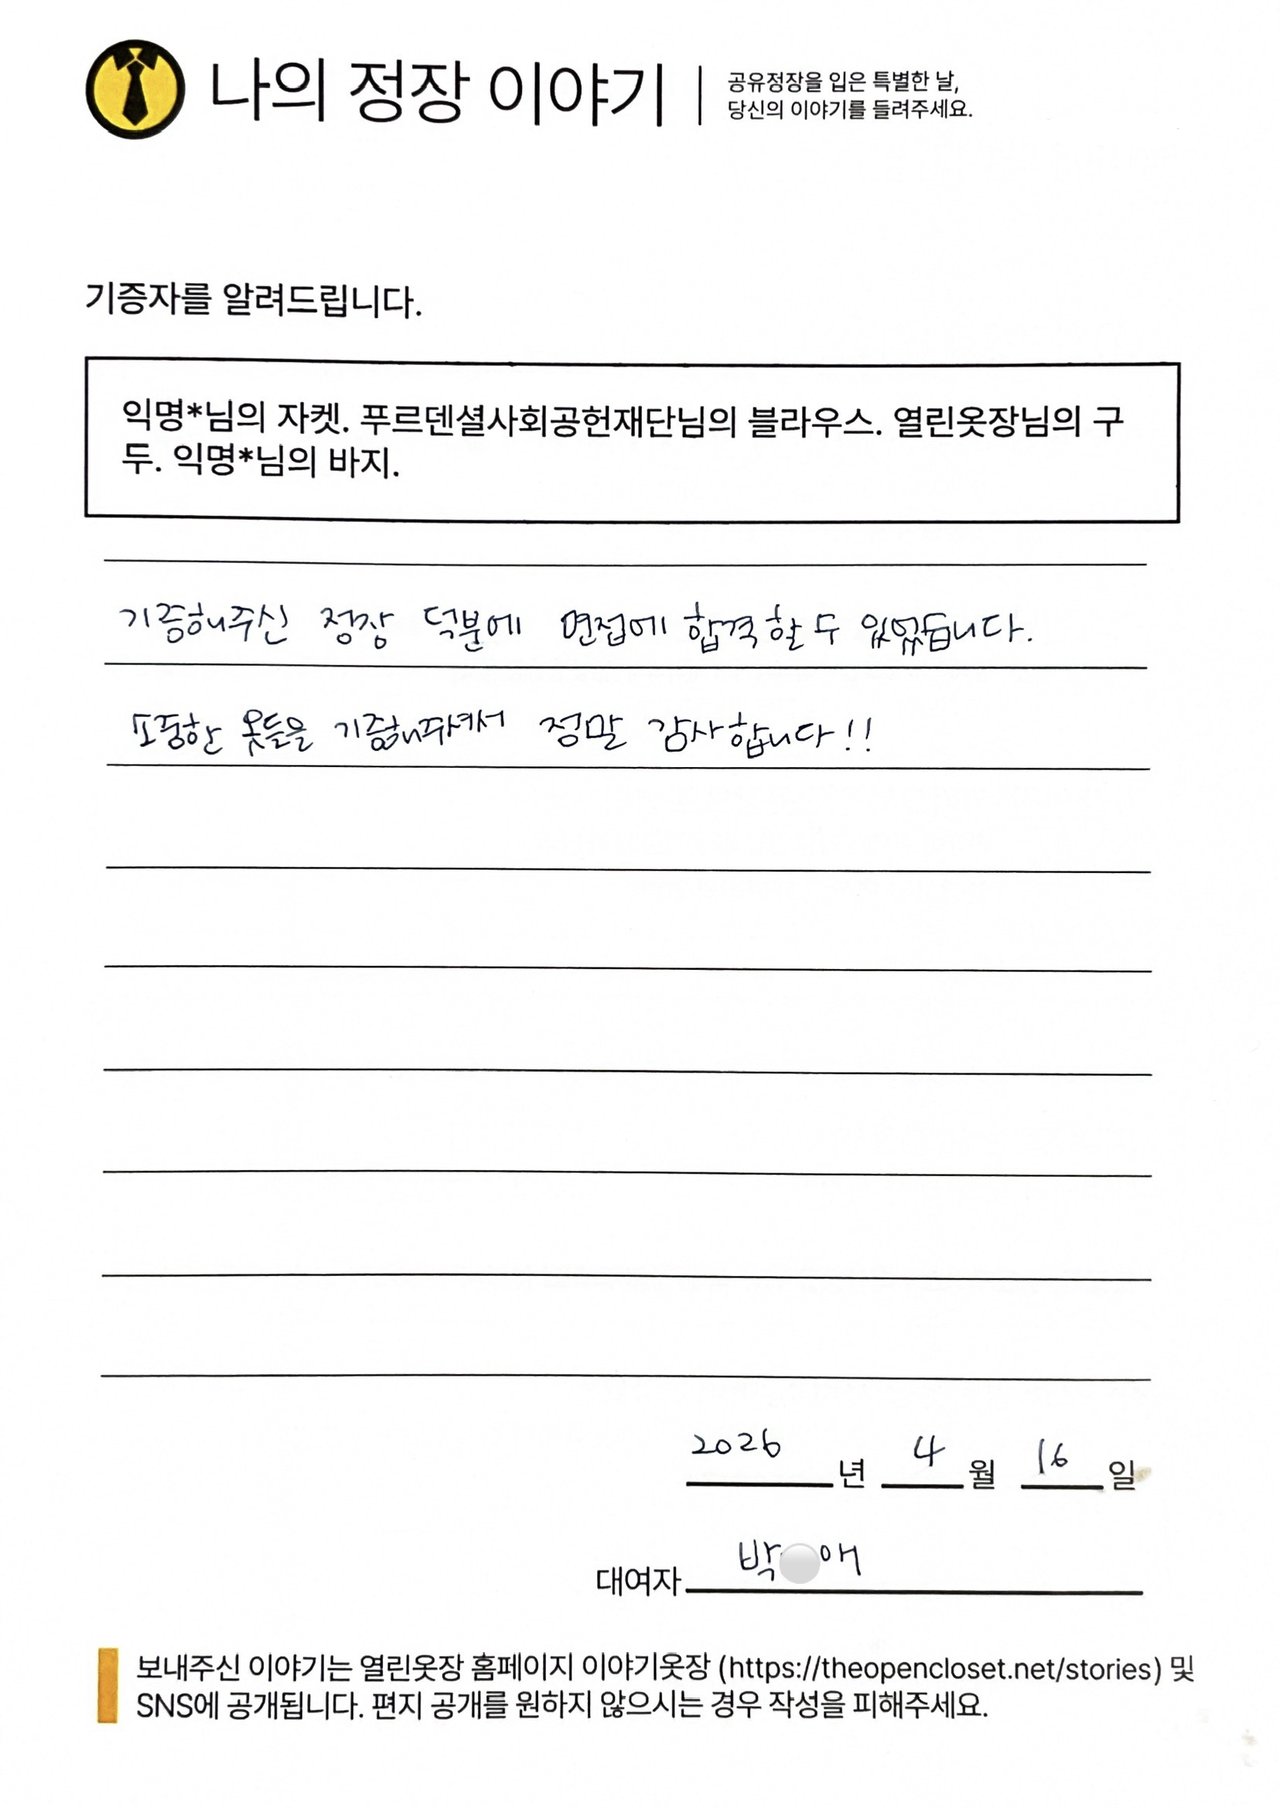 나의 정장 이야기
공유정장을 입은 특별한 날,
당신의 이야기를 들려주세요.
기증자를 알려드립니다.
익명*님의 자켓. 푸르덴셜사회공헌재단님의 블라우스. 열린옷장님의 구
두. 익명*님의 바지.
기증해주신 정장 덕분에 면접에 합격할 수 있었습니다.
소중한 옷들을 기증해주셔서 정말 감사합니다!!
2026년 4월 16일
대여자 박 애
보내주신 이야기는 열린옷장 홈페이지 이야기옷장 (https://theopencloset.net/stories) 및
SNS에 공개됩니다. 편지 공개를 원하지 않으시는 경우 작성을 피해주세요.